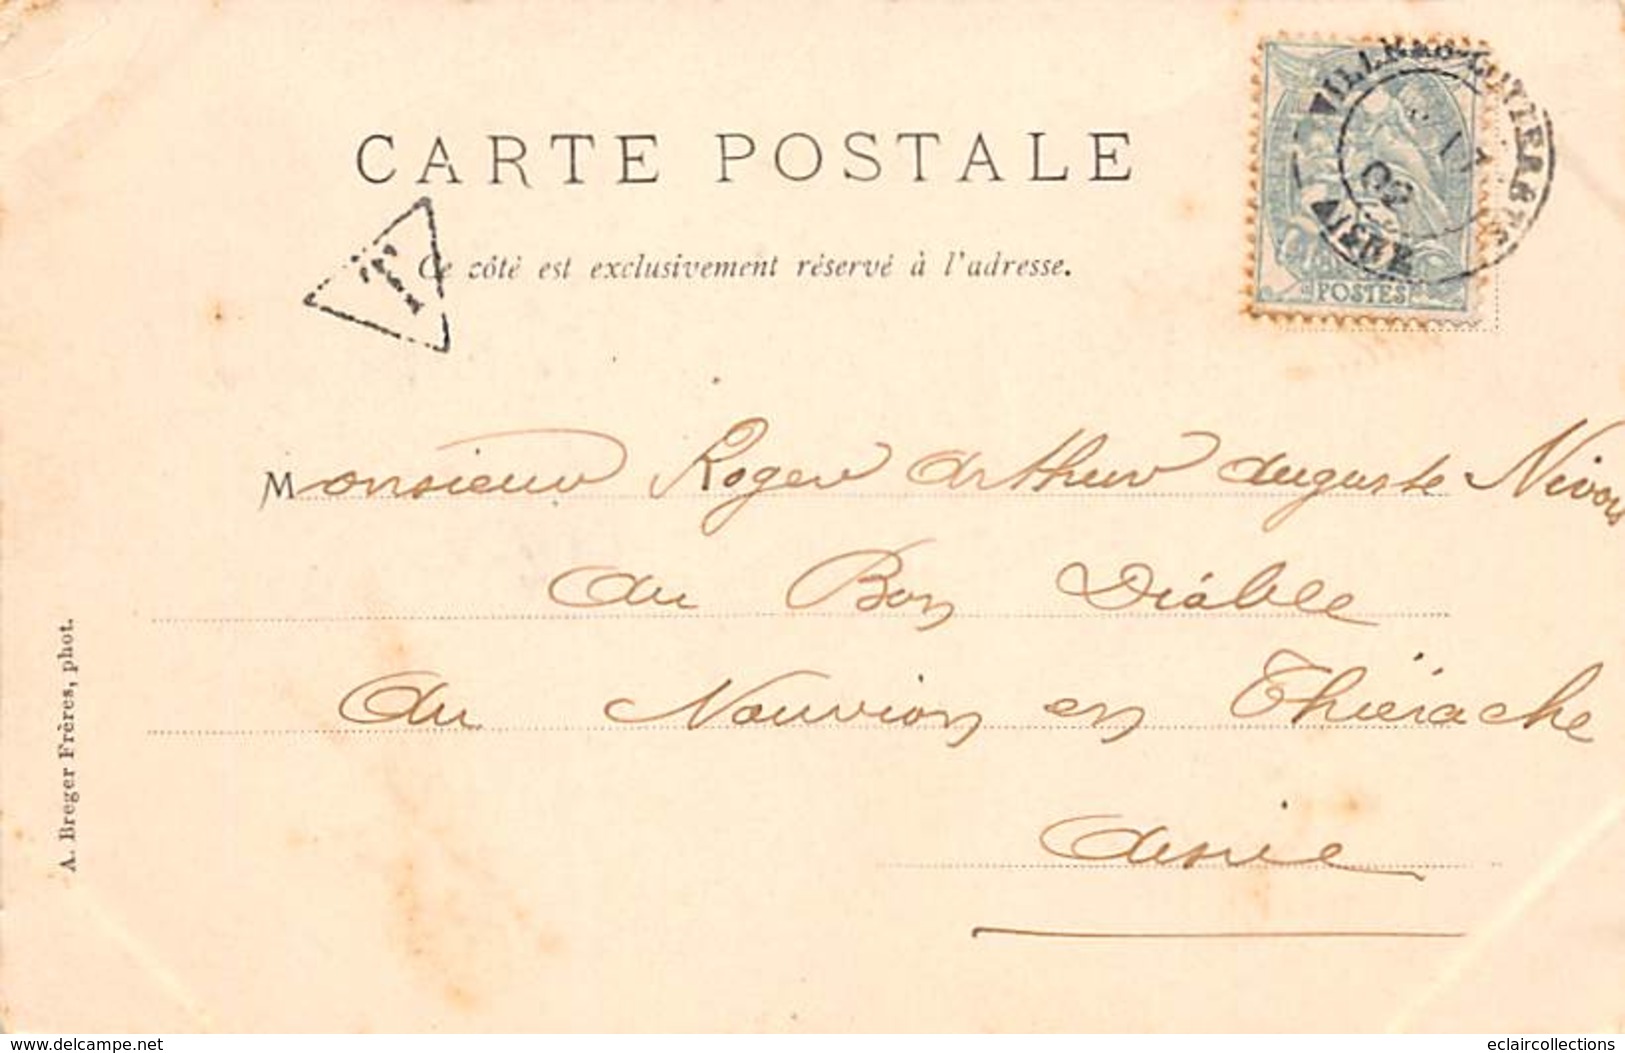 CARTE POSTALE
Ce côté est exclusivement réservé à l'adresse.
T
POSTES
Monsieur Roger Arthur Auguste
au Bon Diable
au Nouvion en Thiérache
Aisne
A. Breger Frères, phot.
www.delcampe.net
eclaircollections